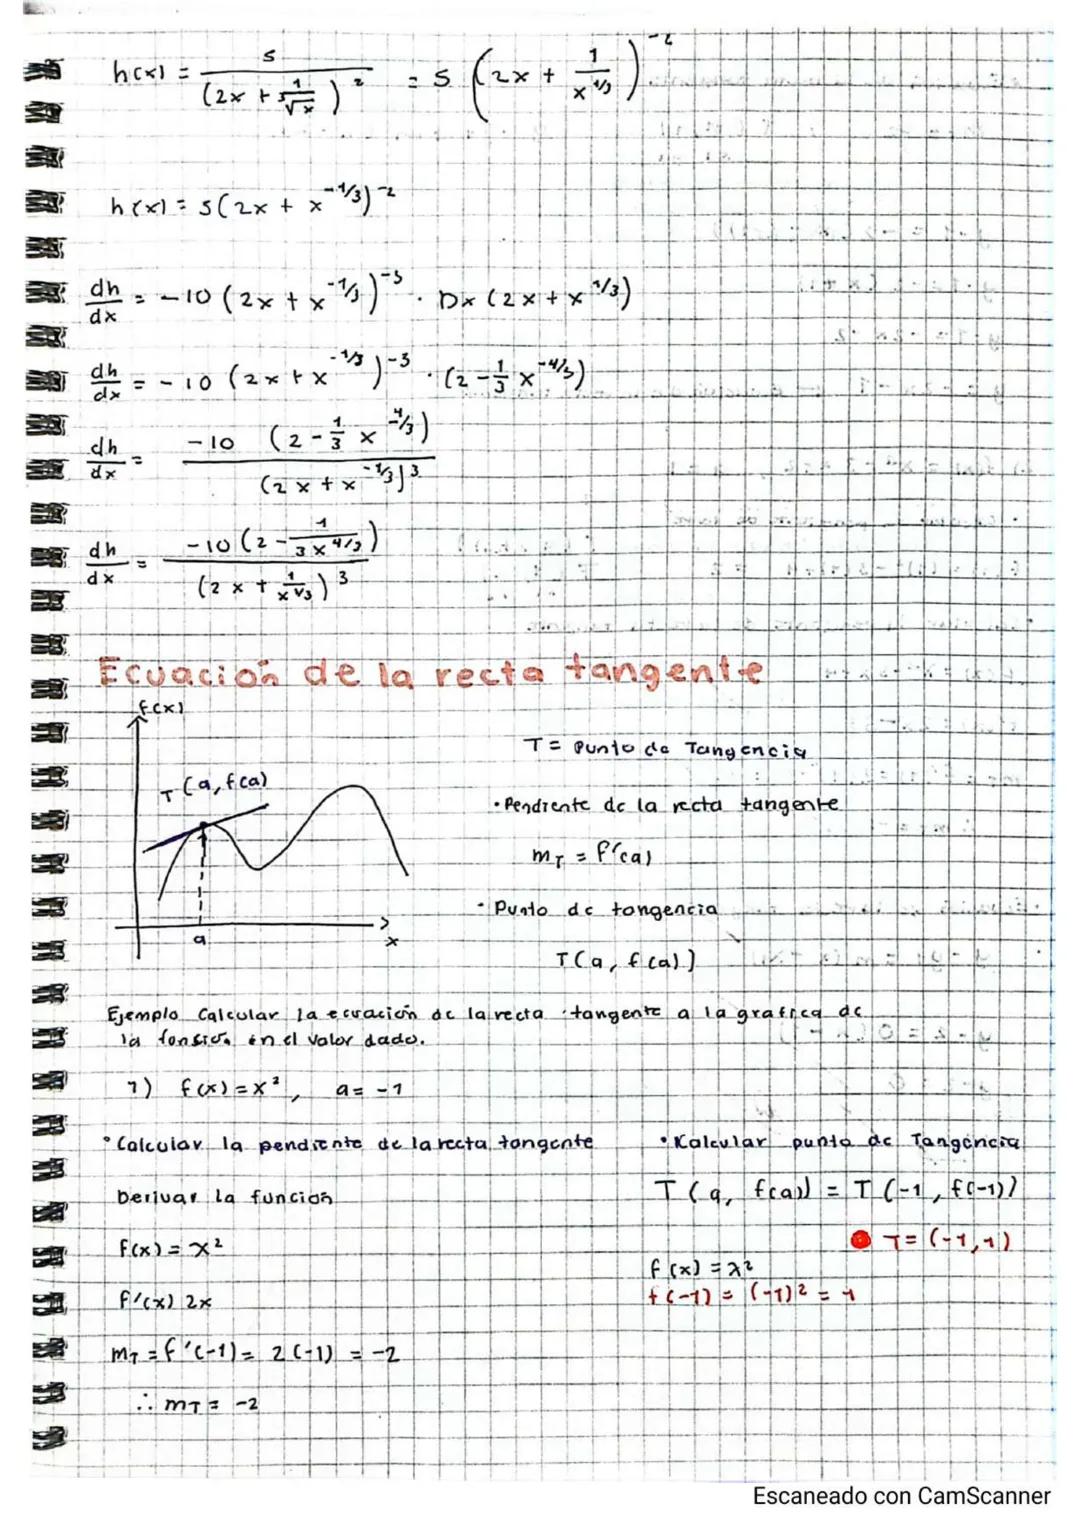 h(x) = 5 / (2x + 1/∛x)² = 5 (2x + 1/x^1/3)^-2
h(x) = 5(2x + x^-1/3)^-2
dh/dx = -10 (2x + x^-1/3)^-3 · Dx (2x + x^-1/3)
dh/dx = -10 (2x + x^-1/3)^-3 · (2 - 1/3 x^-4/3)
dh/dx = -10 (2 - 1/3 x^-4/3) / (2x + x^-1/3)^3
dh/dx = -10 (2 - 1/3x^4/3) / (2x + 1/x^1/3)^3
Ecuación de la recta tangente
f(x)
T (a, f(a)
a
x
T = Punto de Tangencia
• Pendiente de la recta tangente
m_T = f'(a)
• Punto de tangencia
T(a, f(a))
Ejemplo Calcular la ecuación de la recta tangente a la grafica de
la función en el valor dado.
1) f(x) = x², a = -1
• Calcular la pendiente de la recta tangente
Derivar la función
f(x) = x²
f'(x) 2x
m_T = f'(-1) = 2(-1) = -2
∴ m_T = -2
• Kalcular punto de Tangencia
T (a, f(a)) = T (-1, f(-1))
T = (-1, 1)
f(x) = x²
f(-1) = (-1)² = 1
Escaneado con CamScanner